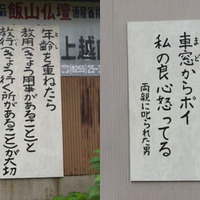 飯山仏壇
上越
年齢を重ねたら
教用(きょう用事があること)と
教行(きょう行く所があること)が大切
車窓からポイ
まど
私の良心怒ってる
両親に叱られた男